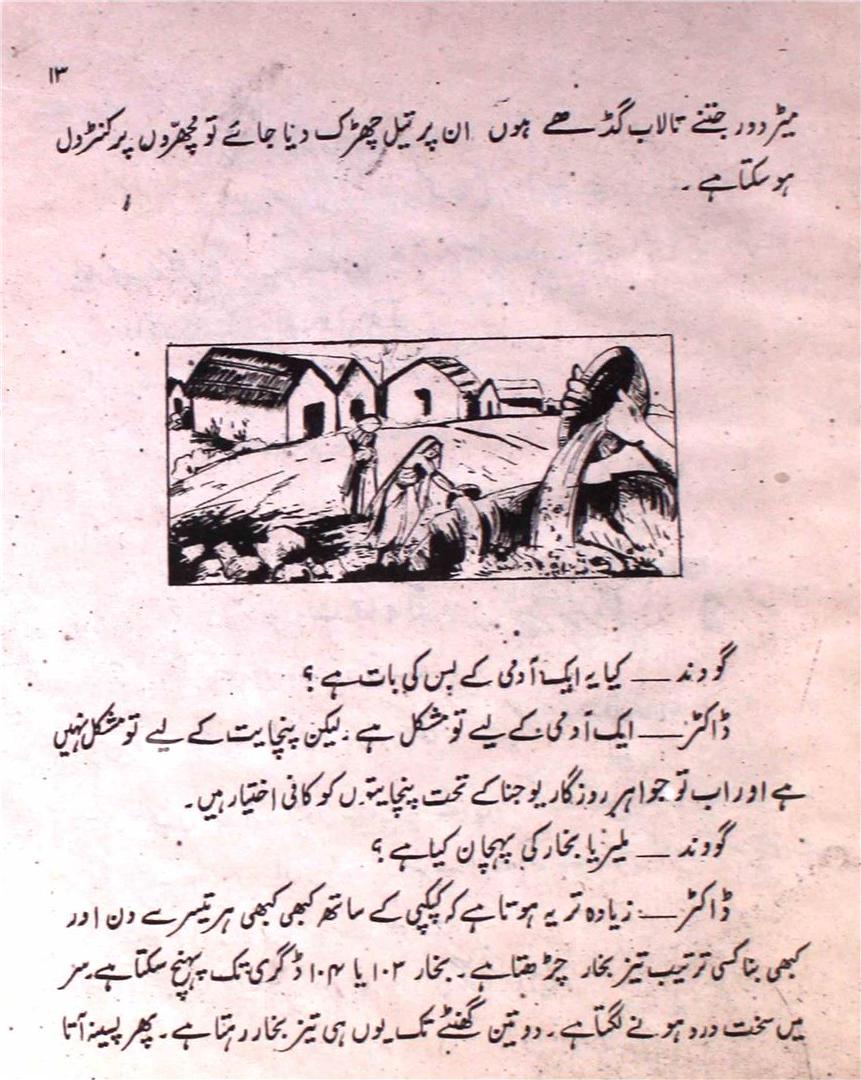 ۱۳
میٹر دور جتنے تالاب گڈھے ہوں ان پر تیل چھڑک دیا جائے تو مچھّروں پر کنٹرول
ہو سکتا ہے ۔
گووند ــــ کیا یہ ایک آدمی کے بس کی بات ہے ؟
ڈاکٹر ــــ ایک آدمی کے لیے تو مشکل ہے ۔ لیکن پنچایت کے لیے تو مشکل نہیں
ہے اور اب تو جواہر روزگار یوجنا کے تحت پنچایتوں کو کافی اختیار ہیں ۔
گووند ــــ ملیریا بخار کی پہچان کیا ہے ؟
ڈاکٹر ــــ زیادہ تر یہ ہوتا ہے کہ کپکپی کے ساتھ کبھی کبھی ہر تیسرے دن اور
کبھی بنا کسی ترتیب تیز بخار چڑھتا ہے ۔ بخار ۱۰۳ یا ۱۰۴ ڈگری تک پہنچ سکتا ہے ۔ سر
میں سخت درد ہونے لگتا ہے ۔ دو تین گھنٹے تک یوں ہی تیز بخار رہتا ہے ۔ پھر پسینہ آتا